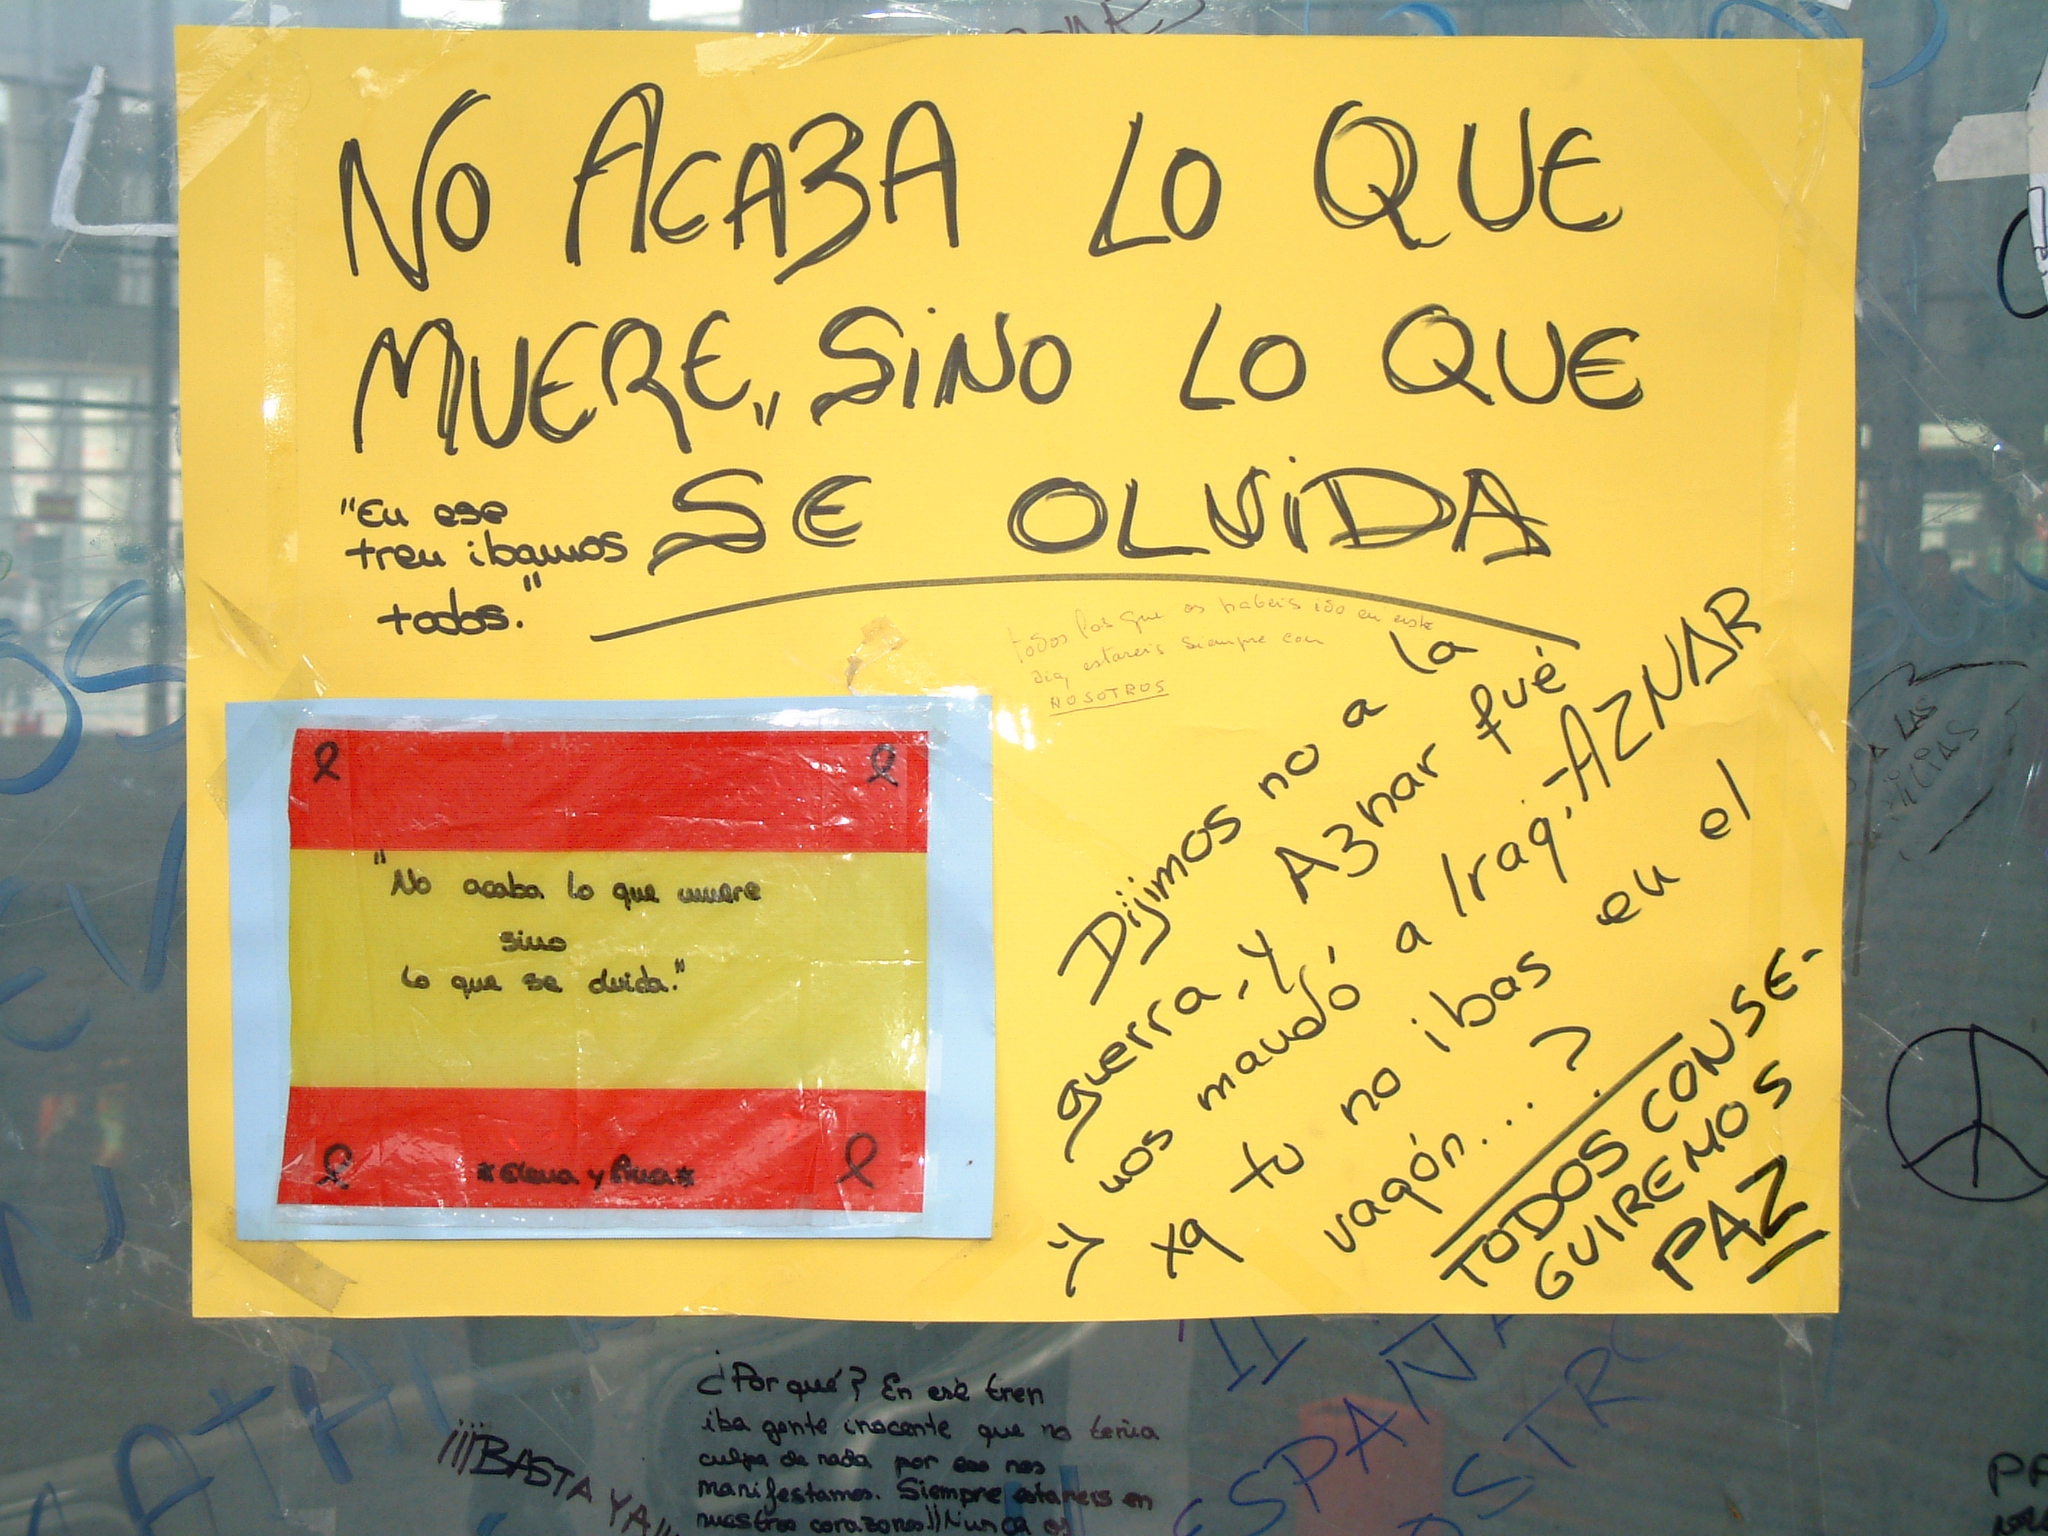 NO ACABA LO QUE
MUERE, SINO LO QUE
SE OLVIDA
"En ese
tren ibamos
todos."
todos los que os habeis ido en este
dia, estareis siempre con
NOSOTROS
"No acaba lo que muere
sino
lo que se olvida."
*Elena y
Dijimos no a la
guerra, y Aznar fué
nos mandó a Iraq. -AZNAR
xq tu no ibas en el
vagón...?
TODOS CONSE-
GUIREMOS
PAZ
A LAS
¿Por qué? En ese tren
iba gente inocente que no tenia
culpa de nada por eso nos
manifestamos. Siempre estareis en
nuestros corazones!! Nunca os
¡¡¡BASTA YA!!!